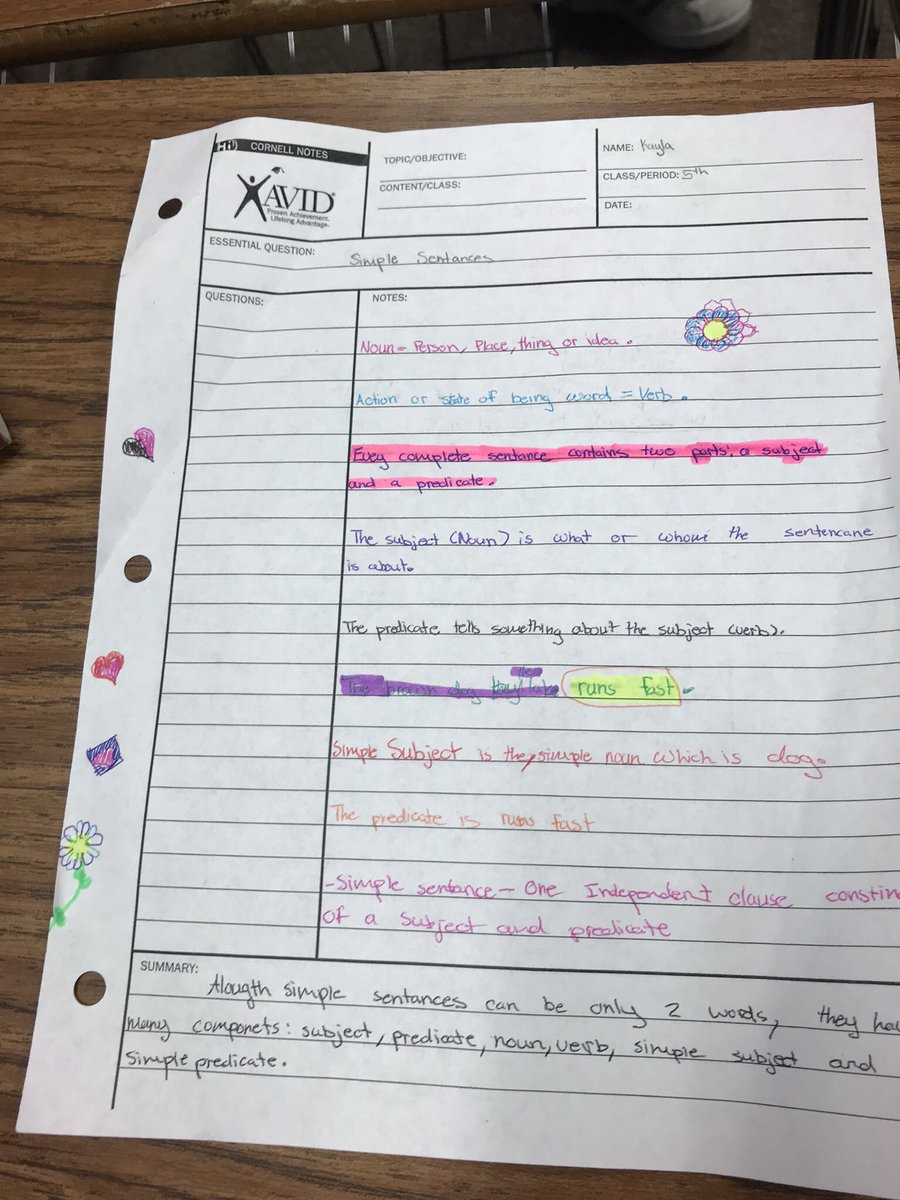 CORNELL NOTES
AVID®
Proven Achievement.
Lifelong Advantage.
TOPIC/OBJECTIVE:
CONTENT/CLASS:
NAME: Kayla
CLASS/PERIOD: 5th
DATE:
ESSENTIAL QUESTION:
Simple Sentances
QUESTIONS:
NOTES:
Noun = Person, Place, thing or idea.
Action or state of being word = Verb.
Evey complete sentance contains two parts; a subject
and a predicate.
The subject (Noun) is what or whom the sentencane
is about.
The predicate tells something about the subject (verb).
The brown dog runs fast
Simple Subject is the simple noun which is dog.
The predicate is runs fast
-Simple sentance - One Independent clause constin
of a subject and predicate
SUMMARY:
Alougth simple sentances can be only 2 words, they hav
many componets: subject, predicate, noun, verb, simple subject and
simple predicate.